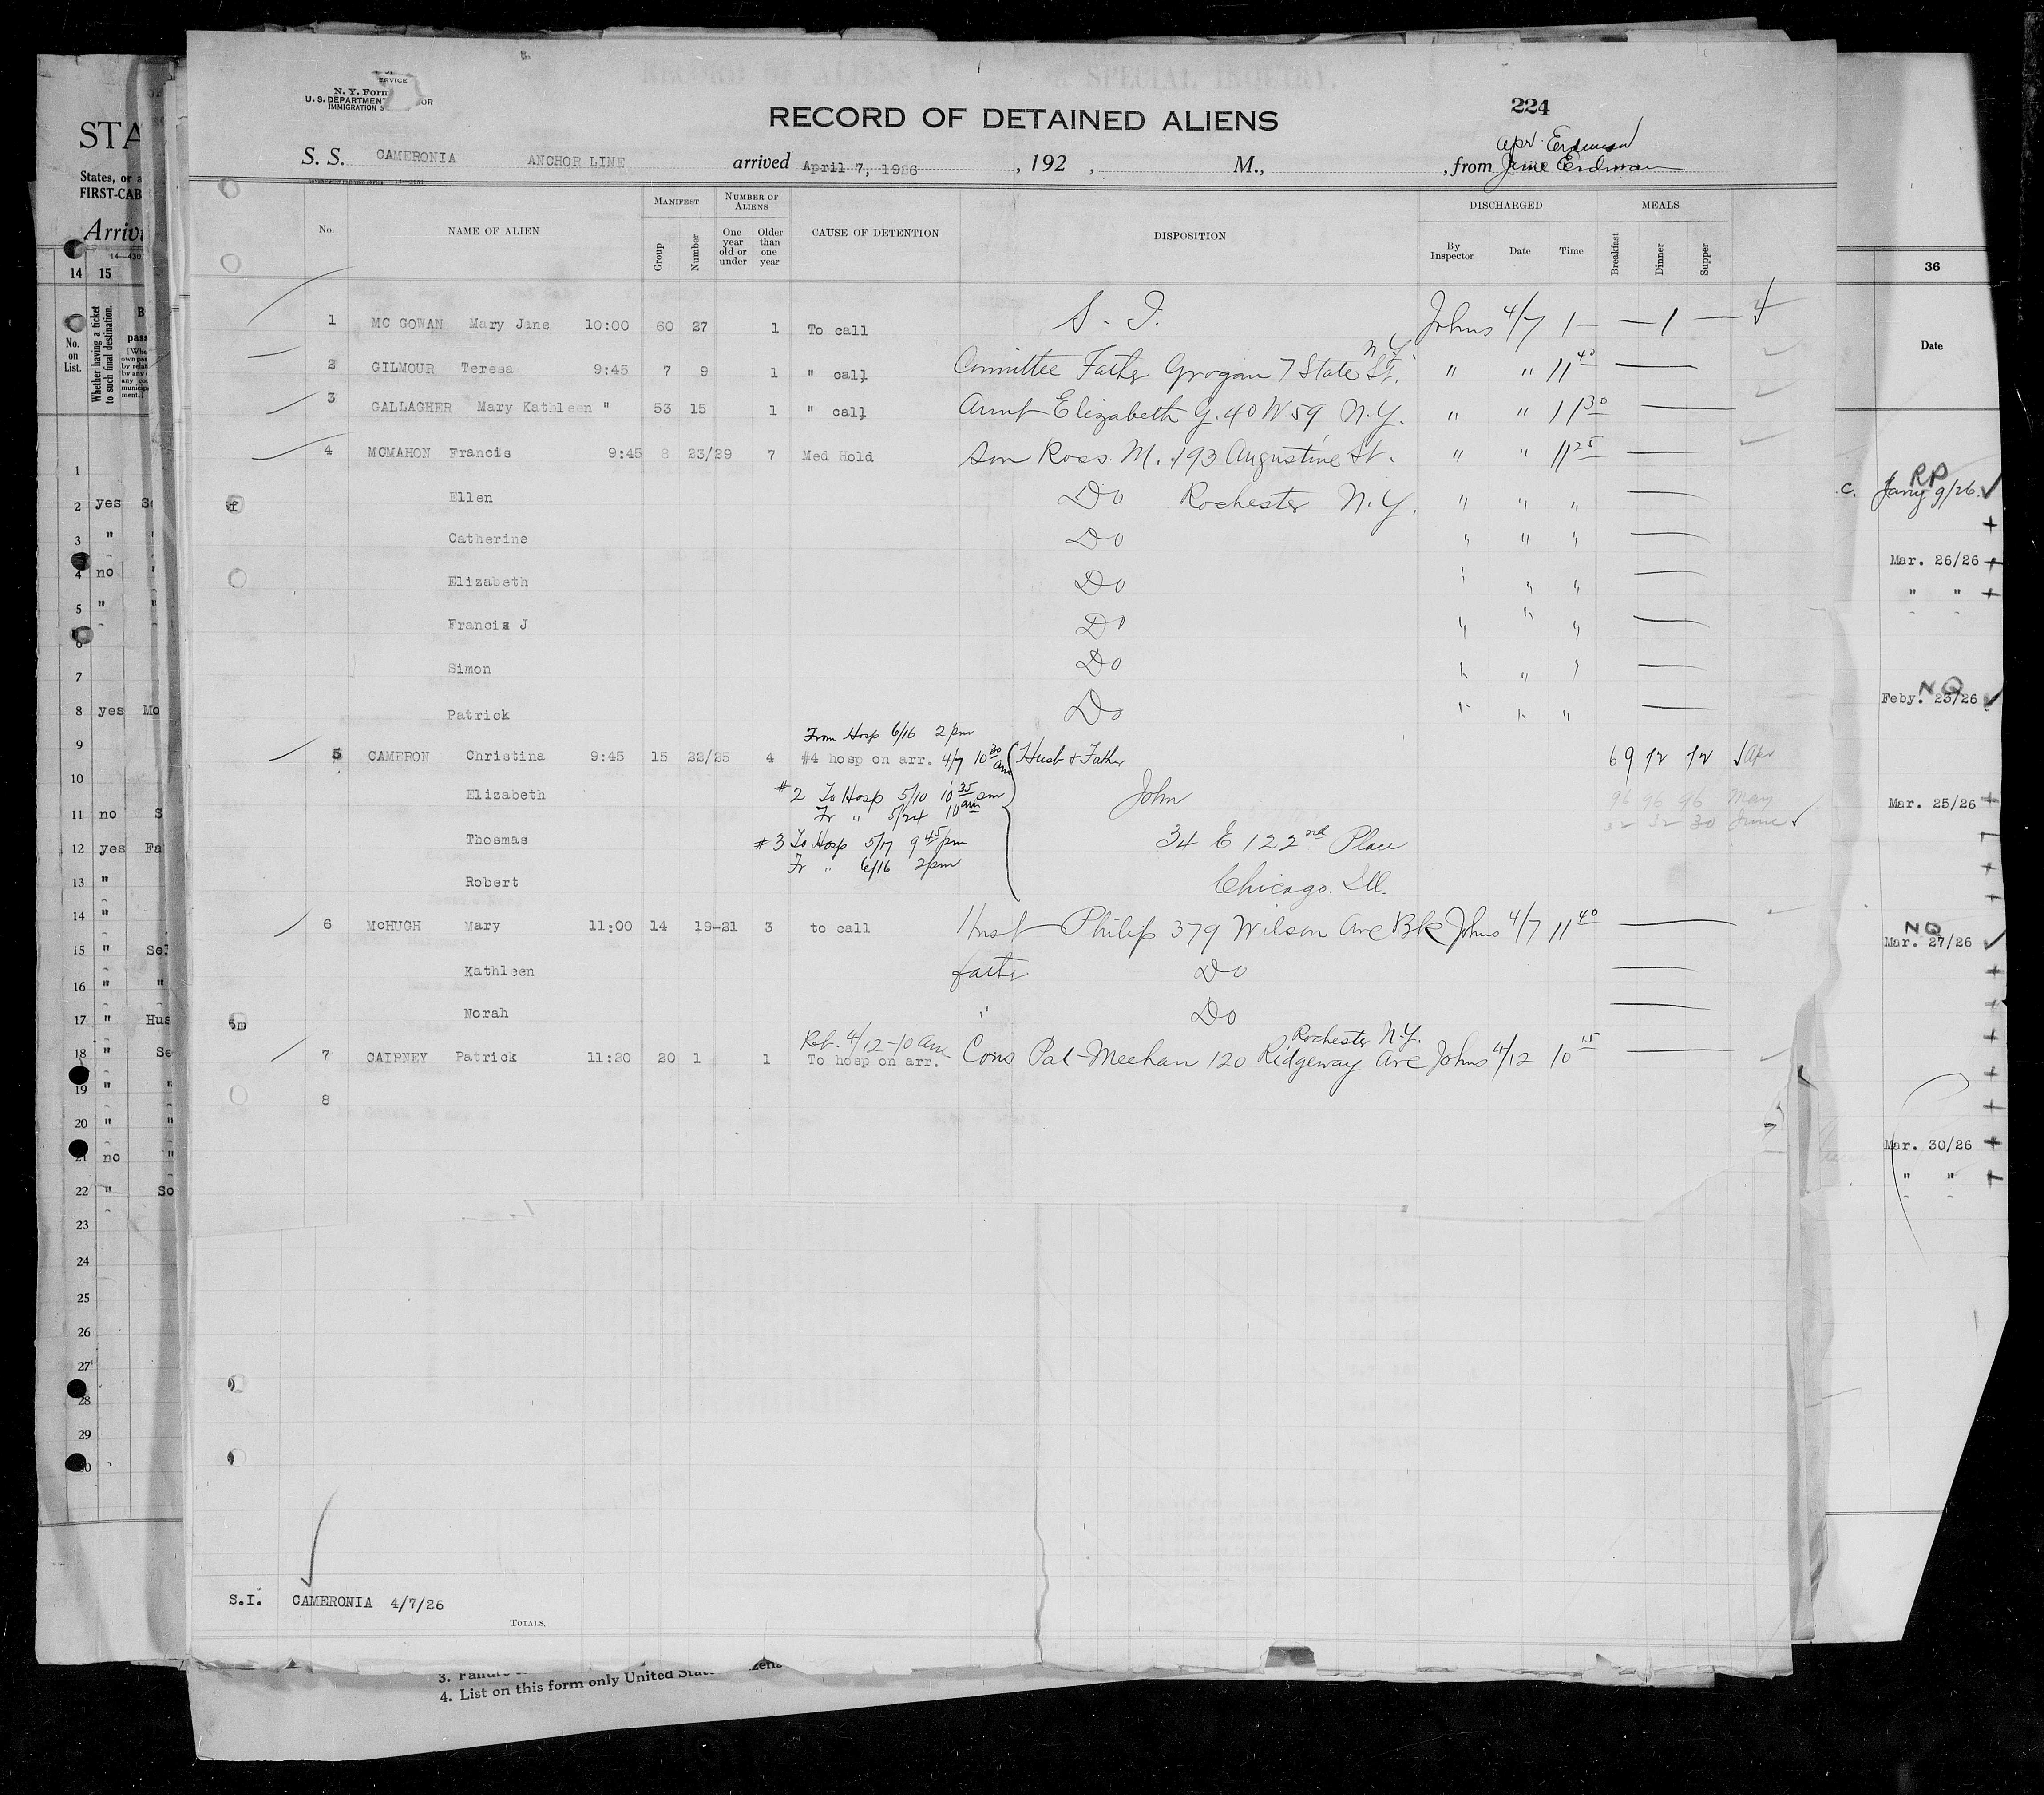 224
N. Y. Form
U. S. DEPARTMENT
IMMIGRATION S
ERVICE
OR
RECORD OF DETAINED ALIENS
Apr. Erdman
S. S. CAMERONIA ANCHOR LINE arrived April 7, 1926 , 192 , M., , from June Erdman
No. NAME OF ALIEN MANIFEST Group Number NUMBER OF ALIENS One year old or under Older than one year CAUSE OF DETENTION DISPOSITION DISCHARGED By Inspector Date Time MEALS Breakfast Dinner Supper
1 MC GOWAN Mary Jane 10:00 60 27 1 To call S. I. Johns 4/7 1— — 1 —
2 GILMOUR Teresa 9:45 7 9 1 " call Committee Father Grogan 7 State St. N.Y. " " 11 40 —
3 GALLAGHER Mary Kathleen " 53 15 1 " call Aunt Elizabeth G. 40 W. 59 N.Y. " " 11 30 —
4 MCMAHON Francis 9:45 8 23/29 7 Med Hold Son Ross M. 193 Augustine St. " " 11 25 —
Ellen Do Rochester N.Y. " " " —
Catherine Do " " " —
Elizabeth Do " " " —
Francis J Do " " " —
Simon Do " " " —
Patrick Do " " " —
From Hosp 6/16 2 pm
5 CAMERON Christina 9:45 15 22/25 4 #4 hosp on arr. 4/7 10 30 am Hust & Father 69 72 72 Apr
Elizabeth #2 To Hosp 5/10 10 35 pm John 96 96 96 May
Fr " 5/24 10 am 32 32 30 June
Thosmas #3 To Hosp 5/17 9 45 pm 34 E 122nd Place
Fr " 6/16 2 pm
Robert Chicago. Ill.
6 McHUGH Mary 11:00 14 19-21 3 to call Hust Philip 379 Wilson Ave Bk Johns 4/7 11 40 —
Kathleen father Do —
Norah " Do —
Ret. 4/12-10 Am Rochester N.Y.
7 CAIRNEY Patrick 11:20 20 1 1 To hosp on arr. Cous Pat Meehan 120 Ridgeway Ave Johns 4/12 10 15 —
8
S.I. CAMERONIA 4/7/26
TOTALS.
4. List on this form only United
STA
States, or a
FIRST-CAB
Arriv
14 15
No. on List.
Whether having a ticket to such final destination.
1
2 yes
3 "
4 no
5 "
6
7
8 yes Mo
9
10
11 no S
12 yes Fa
13 "
14 "
15 "
16 " "
17 " Hus
18 " Se
19 " "
20 " "
21 no "
22 " So
23
24
25
26
27
28
29
30
36
Date
RP
c. Jany 9/26.
Mar. 26/26
" "
NQ
Feby. 23/26
Mar. 25/26
NQ
Mar. 27/26
Mar. 30/26
" "